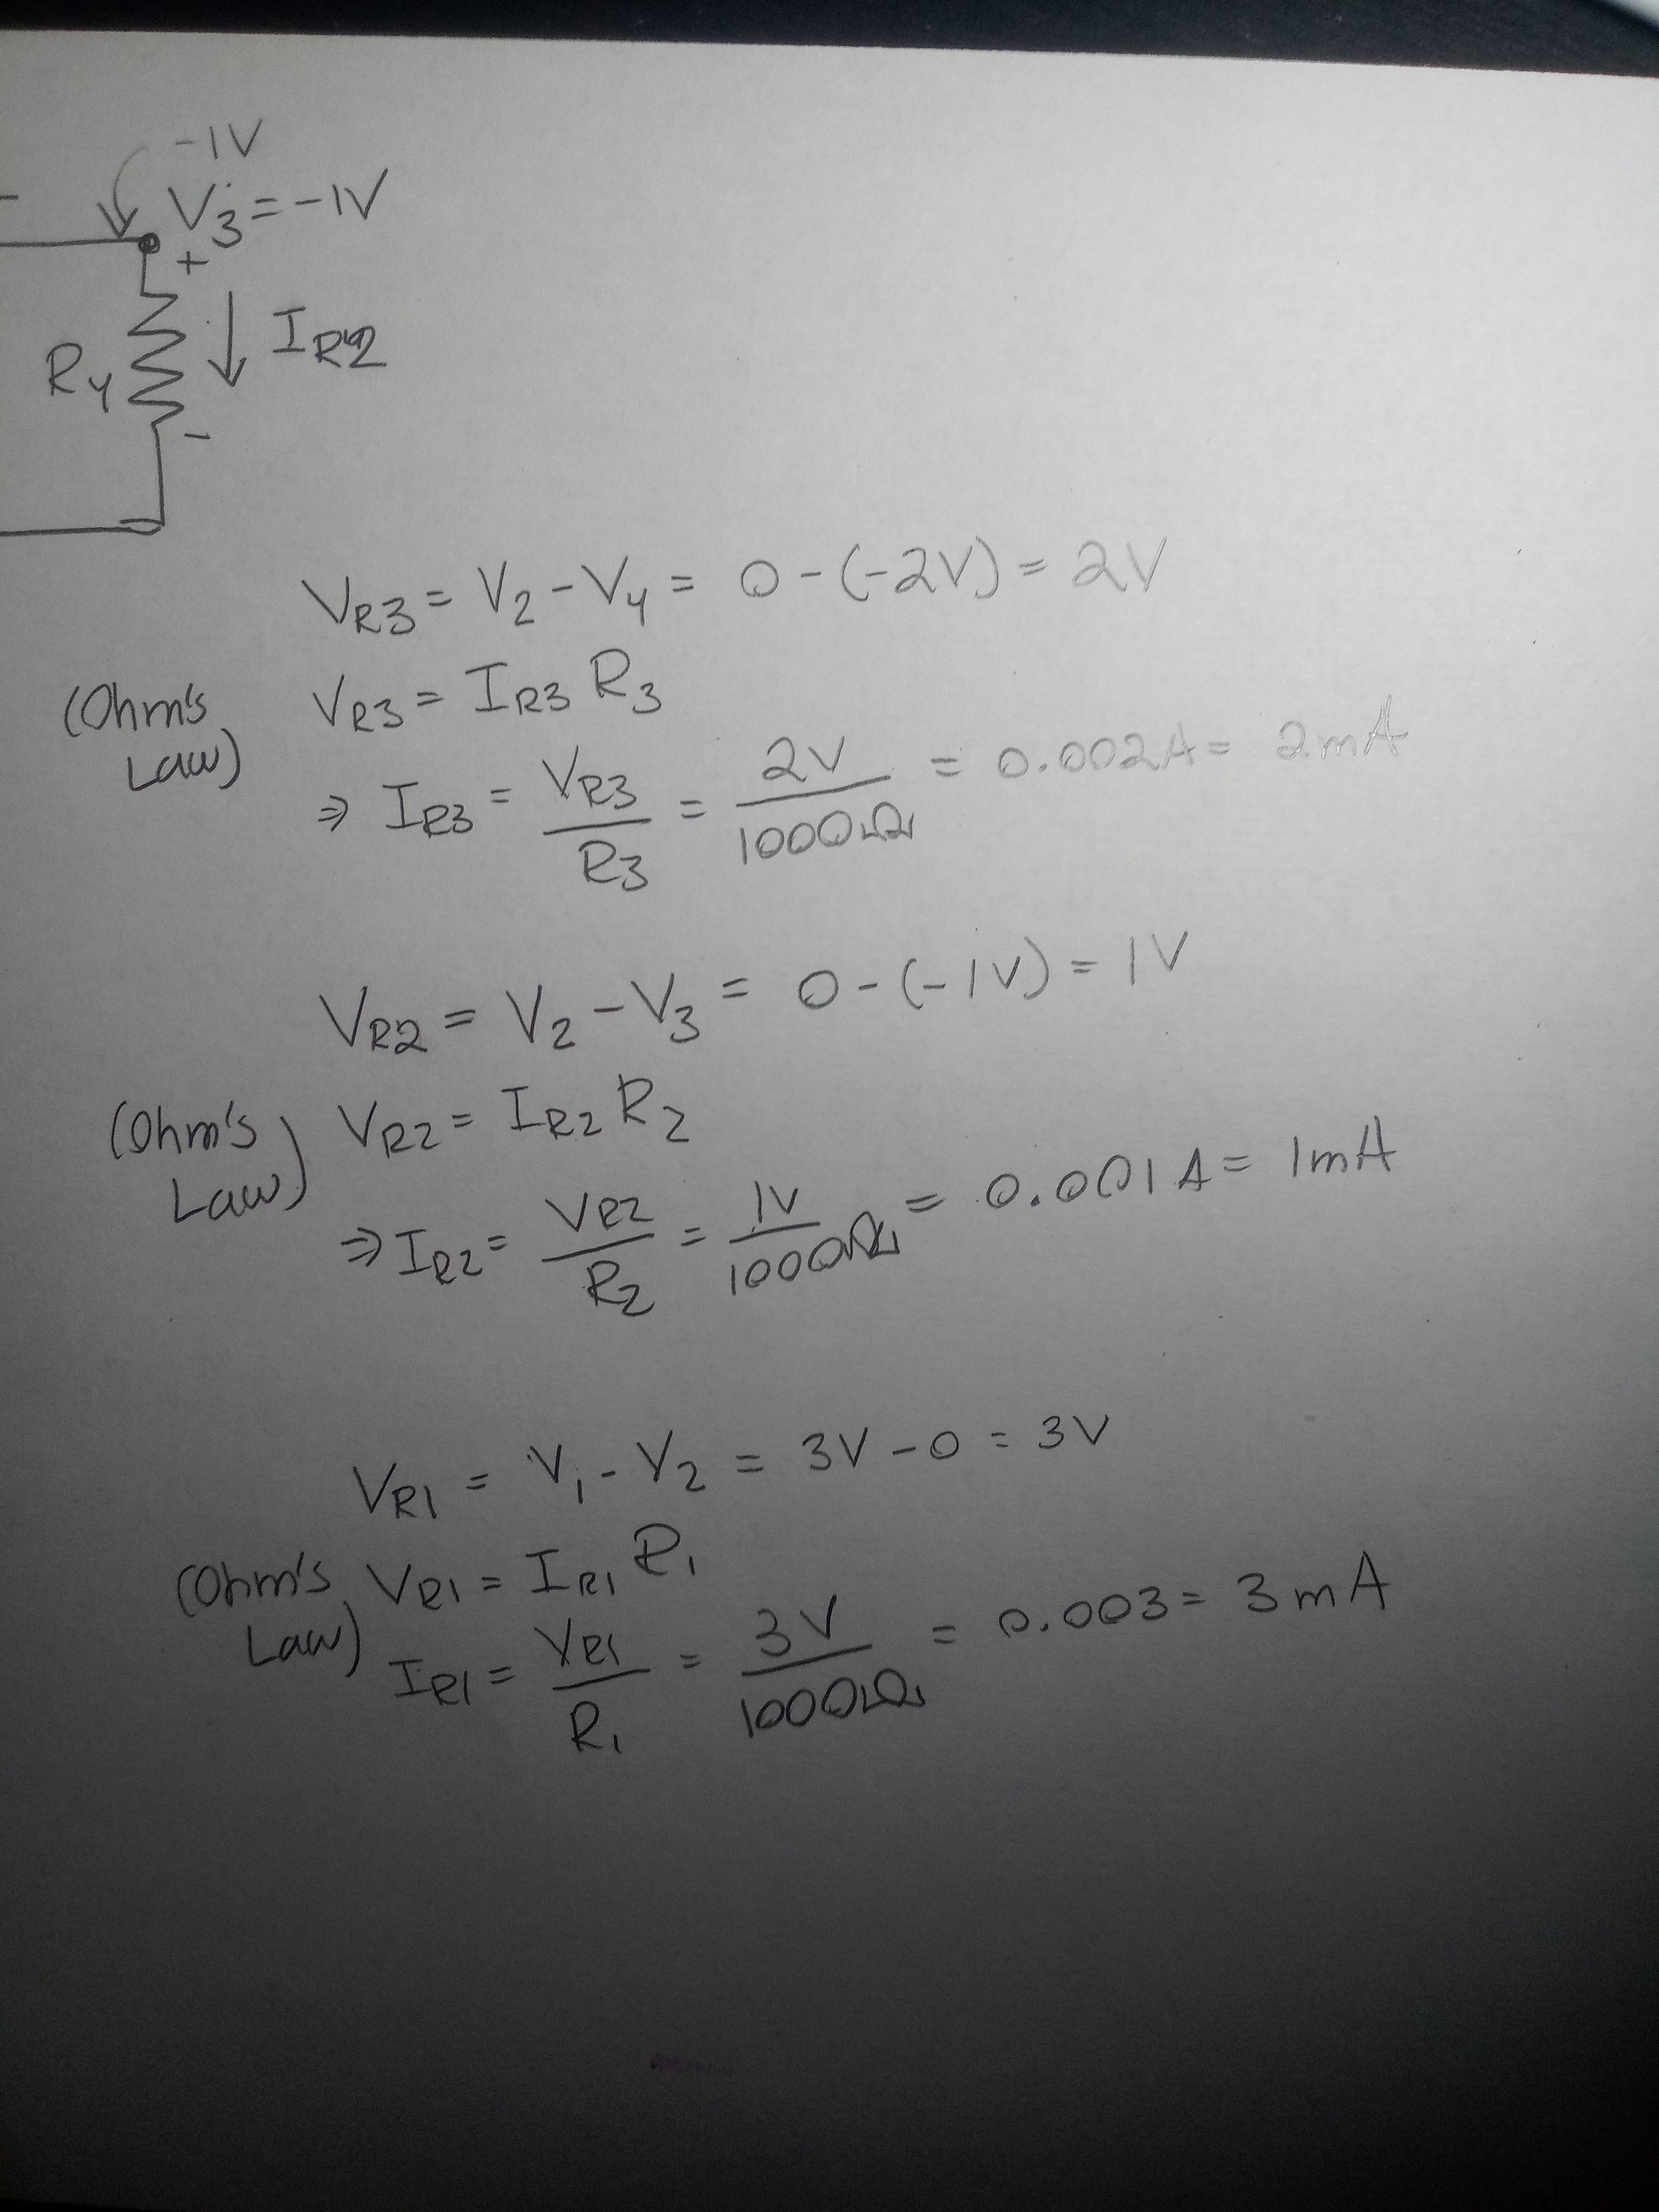 -1V
V3 = -1V
+
R4 IR2
-
VR3 = V2 - V4 = 0 - (-2V) = 2V
(Ohm's Law) VR3 = IR3 R3
⇒ IR3 = VR3/R3 = 2V/1000Ω = 0.002A = 2mA
VR2 = V2 - V3 = 0 - (-1V) = 1V
(Ohm's Law) VR2 = IR2 R2
⇒ IR2 = VR2/R2 = 1V/1000Ω = 0.001A = 1mA
VR1 = V1 - V2 = 3V - 0 = 3V
(Ohm's Law) VR1 = IR1 R1
IR1 = VR1/R1 = 3V/1000Ω = 0.003 = 3mA